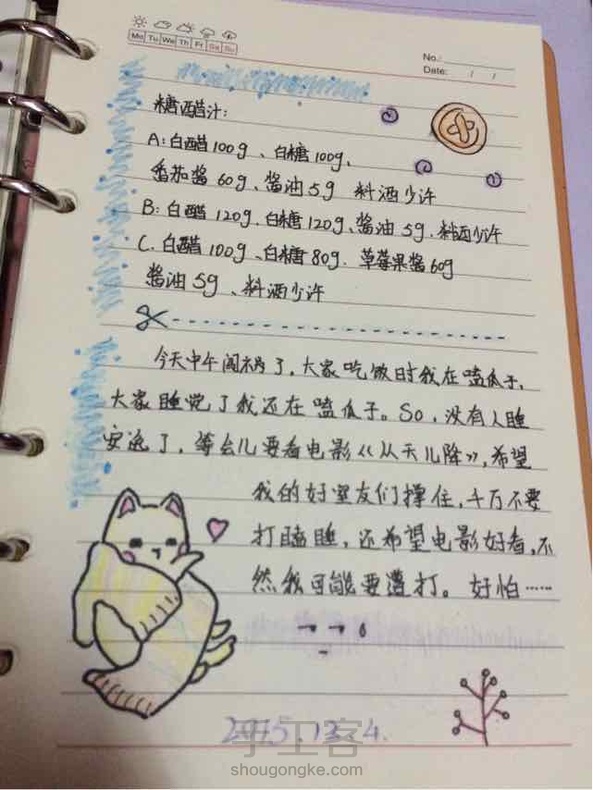 Mo Tu We Th Fr Sa Su
No.:
Date: / /
糖醋汁:
A:白醋100g、白糖100g、
番茄酱60g、酱油5g 料酒少许
B:白醋120g、白糖120g、酱油5g、料酒少许
C、白醋100g、白糖80g、草莓果酱60g
酱油5g、料酒少许
今天中午闯祸了,大家吃饭时我在嗑瓜子,
大家睡觉了我还在嗑瓜子。So,没有人睡
安逸了,等会儿要看电影《从天儿降》,希望
我的好室友们撑住,千万不要
打瞌睡,还希望电影好看,不
然我可能要遭打。好怕……
2015.12.4.
手工客
shougongke.com